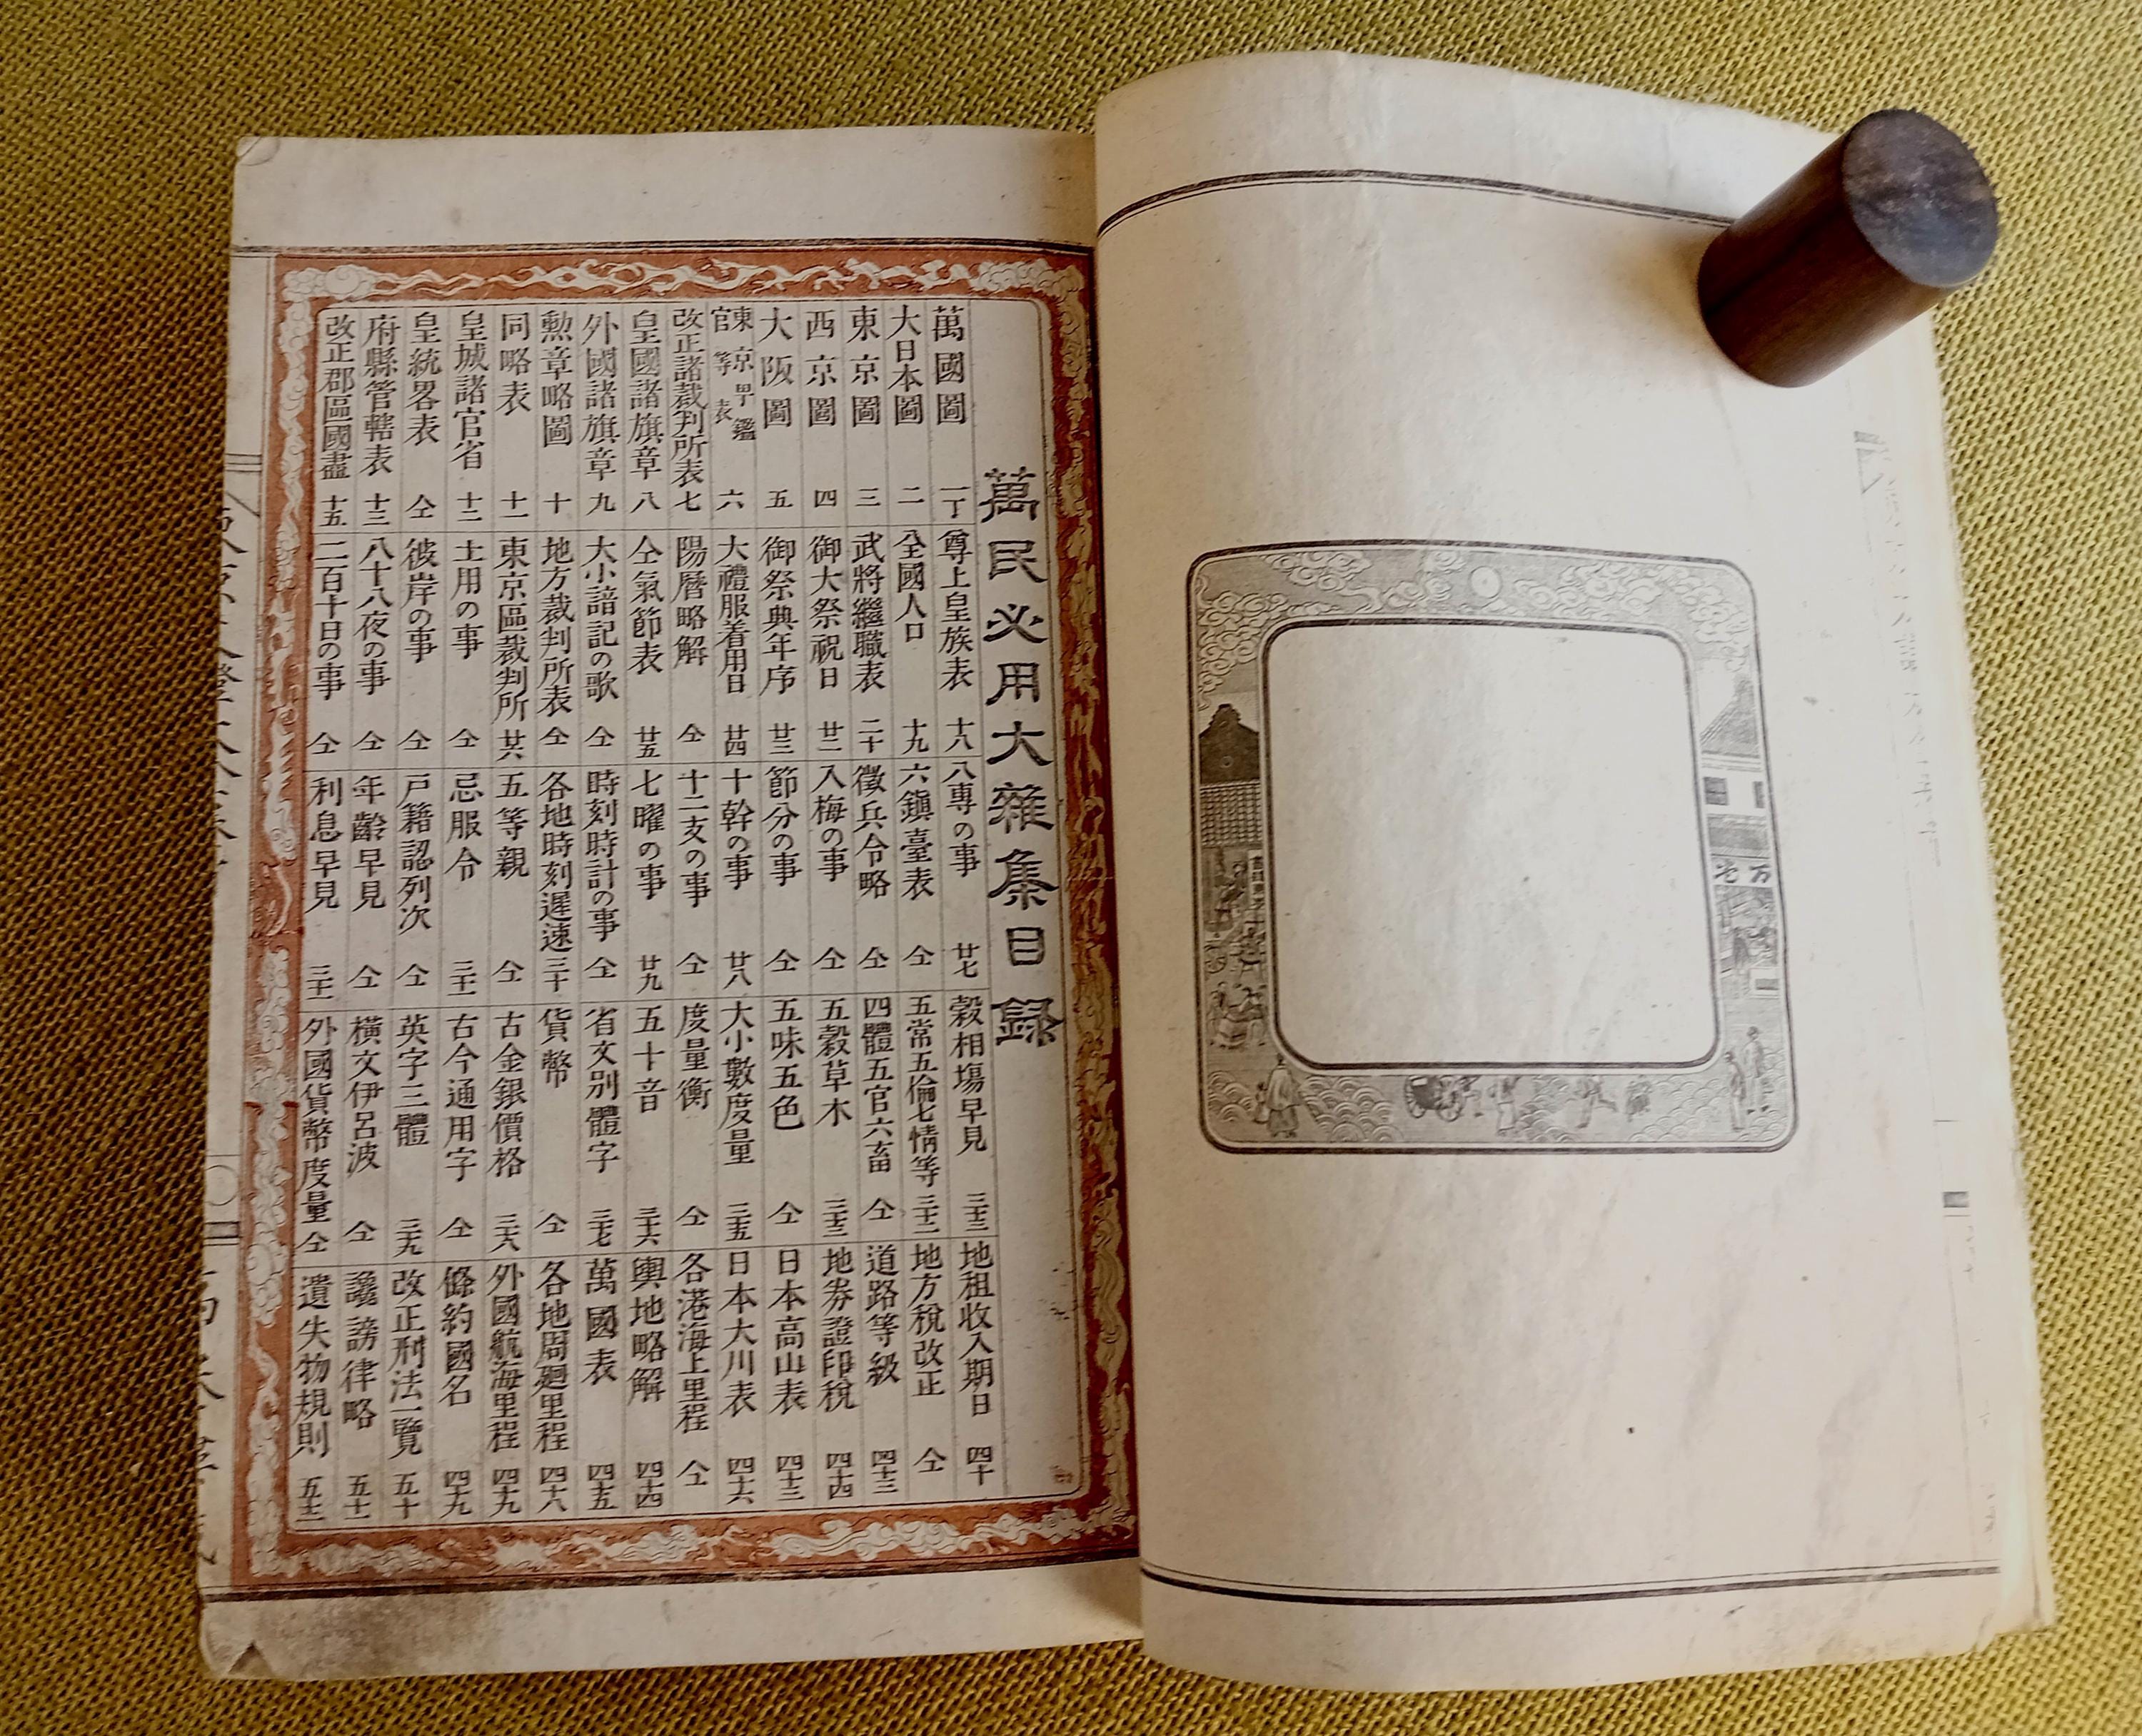 萬民必用大雜集目録
萬國圖 一丁
大日本圖 二
東京圖 三
西京圖 四
大阪圖 五
東京早鑑
官等表 六
改正諸裁判所表 七
皇國諸旗章 八
外國諸旗章 九
勲章略圖 十
同略表 十一
皇城諸官省 十二
皇統畧表 仝
府縣管轄表 十三
改正郡區國盡 十五
尊上皇族表 十八
全國人口 十九
武將繼職表 二十
御大祭祝日 廿二
御祭典年序 廿三
大禮服着用日 廿四
陽曆略解 仝
仝氣節表 廿五
大小諳記の歌 仝
地方裁判所表 仝
東京區裁判所 廿六
土用の事 仝
彼岸の事 仝
八十八夜の事 仝
二百十日の事 仝
八專の事 廿七
六鎭臺表 仝
徵兵令略 仝
入梅の事 仝
節分の事 仝
十幹の事 廿八
十二支の事 仝
七曜の事 廿九
時刻時計の事 仝
各地時刻遲速 三十
五等親 仝
忌服令 三十一
戸籍認列次 仝
年齡早見 仝
利息早見 三十二
穀相塲早見 三十三
五常五倫七情等 三十二
四體五官六畜 仝
五穀草木 三十三
五味五色 仝
大小數度量 三十五
度量衡 仝
五十音 三十六
省文別體字 三十七
貨幣 仝
古金銀價格 三十八
古今通用字 仝
英字三體 三十九
橫文伊呂波 仝
外國貨幣度量 仝
地租收入期日 四十
地方稅改正 仝
道路等級 四十三
地券證印稅 四十四
日本高山表 四十三
日本大川表 四十六
各港海上里程 仝
輿地略解 四十四
萬國表 四十五
各地周廻里程 四十八
外國航海里程 四十九
條約國名 四十九
改正刑法一覽 五十
讒謗律略 五十一
遺失物規則 五十二